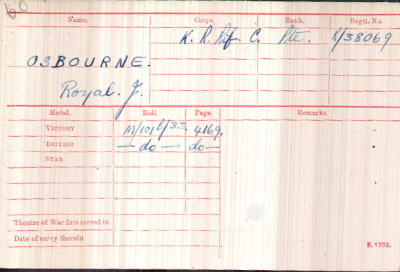 60
Name. Corps. Rank. Regtl. No.
K. R. Rif. C. Pte. R/38069
OSBOURNE.
Royal. J.
Medal. Roll. Page. Remarks.
VICTORY M/101B/33. 4169.
BRITISH — do — do —
STAR
Theatre of War first served in
Date of entry therein
K. 1380.